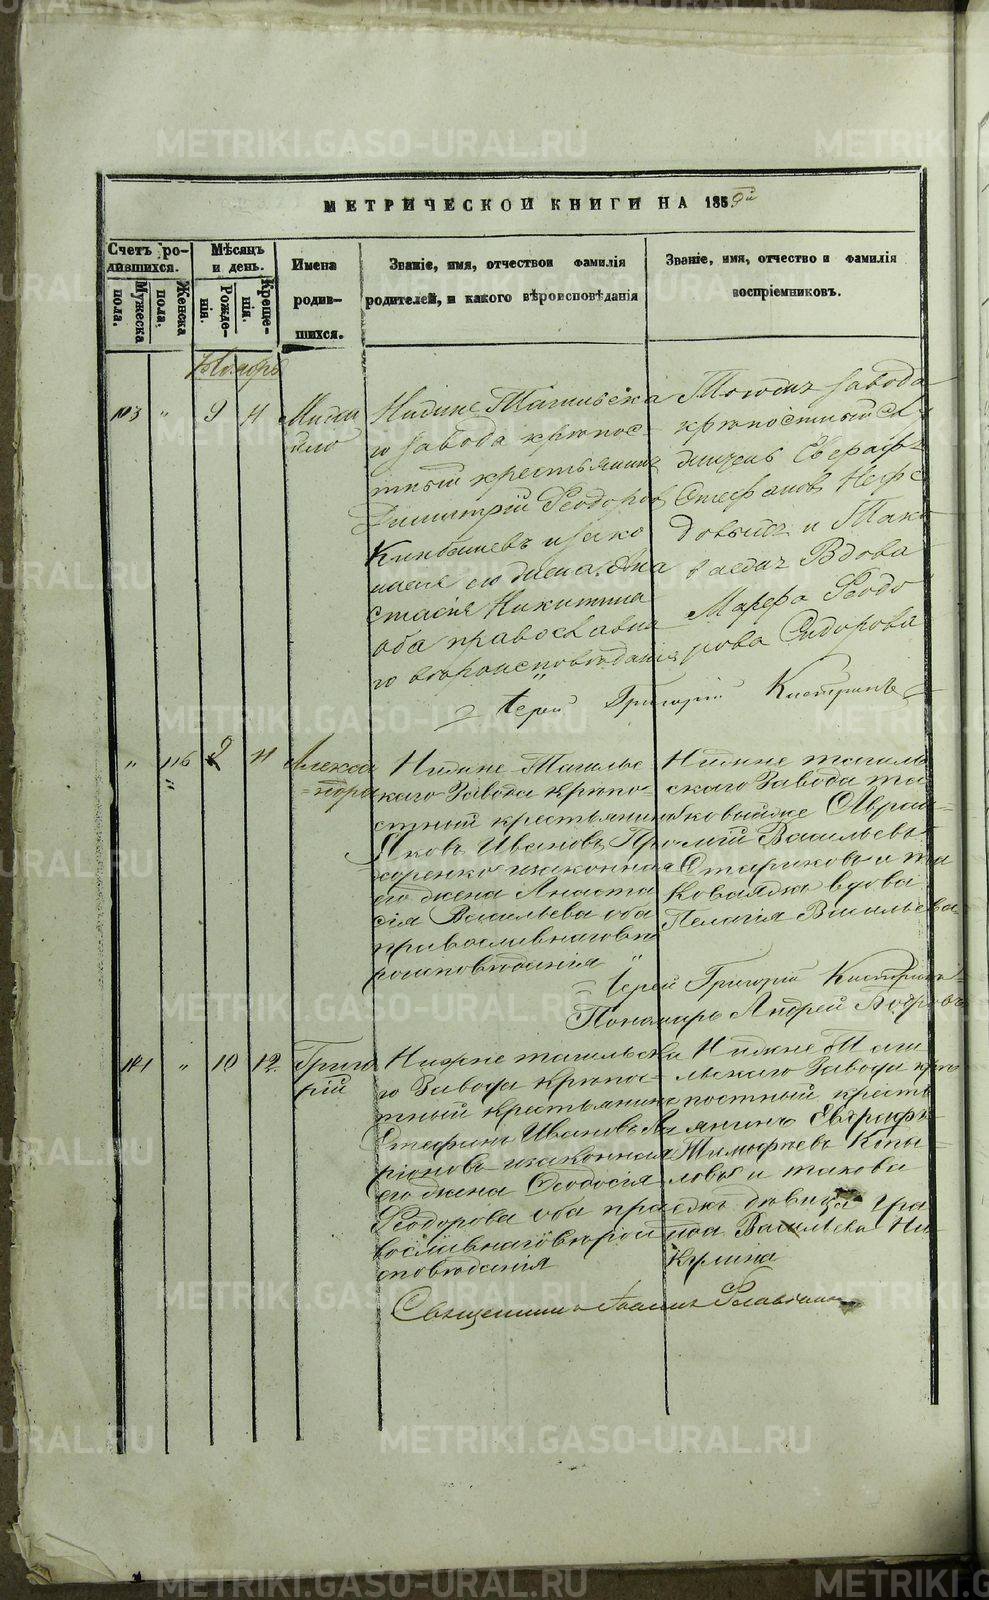 МЕТРИЧЕСКОЙ КНИГИ НА 1859й
Счетъ родившихся.
Мужеска пола.
Женска пола.
Мѣсяцъ и день.
Рожденія.
Крещенія.
Имена
родив-
шихся.
Званіе, имя, отчествои фамилія
родителей, и какого вѣроисповѣданія
Званіе, имя, отчество и фамилія
воспріемниковъ.
Ноябрь
9
Миха
ило
Нижне Тагильска
го завода крѣпос-
тный крестьянинъ
Димитрій Ѳеодоровъ
и зако
ная его жена Ана
стасія Никитина
оба православна
го вѣроисповѣданія
завода
крѣпостный
Стефановъ
довыхъ и
вдова
Марфа Ѳеодо
рова Сидорова
Іерей Григорій
" 116
Алекса
ндра
Нижне Тагильс
каго Завода крѣпо-
стный крестьянинъ
Яковъ Ивановъ Про
хоренко и законная
его жена Анаста
сія Васильева оба
православнаго вѣ
роисповѣданія
Нижне тагиль
скаго Завода та
ковыйже Авра-
мій Васильевъ
Стариковъ и та
коваяжа вдова
Пелагія Васильева
Іерей Григорій
Пономарь Андрей
" 10 12
Григо
рій
Нижне тагильска
го Завода крѣпос-
тный крестьянинъ
Стефанъ Ивановъ Ла
ріоновъ и законная
его жена Ѳеодосія
Ѳеодорова оба пра
вославнаго вѣрои
сповѣданія
Нижне Таги
льскаго Завода крѣ
постный кресть
янинъ Евграфъ
Тимофѣевъ Копы
ловъ и такова
яжъ дѣвица
Васильева Ни
кулина
Священникъ Іоаннъ
METRIKI.GASO-URAL.RU